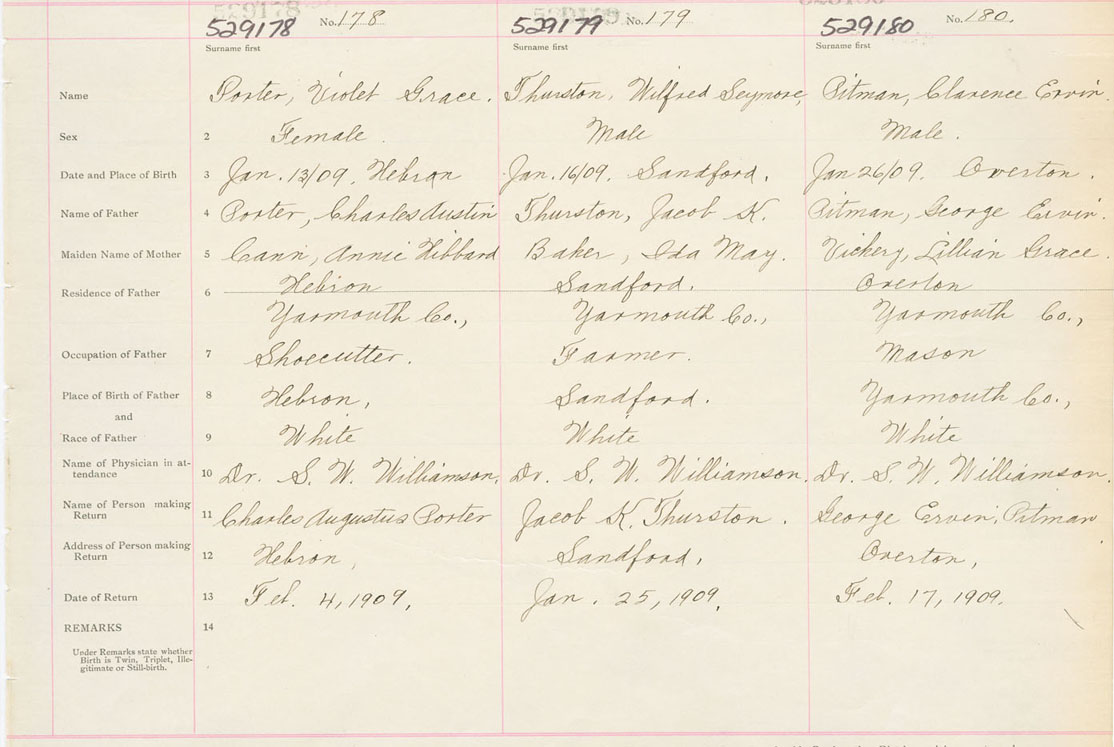 529178 No. 178 529179 No. 179 529180 No. 180.
Surname first Surname first Surname first
Name Porter, Violet Grace. Thurston, Wilfred Seymore, Pitman, Clarence Ervin.
Sex 2 Female. Male Male.
Date and Place of Birth 3 Jan. 13/09. Hebron Jan. 16/09. Sandford. Jan 26/09. Overton.
Name of Father 4 Porter, Charles Austin Thurston, Jacob K. Pitman, George Ervin.
Maiden Name of Mother 5 Cann, Annie Hibbard Baker, Ida May. Vickery, Lillian Grace.
Residence of Father 6 Hebron Sandford. Overton
Yarmouth Co., Yarmouth Co., Yarmouth Co.,
Occupation of Father 7 Shoecutter. Farmer. Mason
Place of Birth of Father 8 Hebron, Sandford. Yarmouth Co.,
and
Race of Father 9 White White White
Name of Physician in at-
tendance 10 Dr. S. W. Williamson, Dr. S. W. Williamson. Dr. S. W. Williamson.
Name of Person making
Return 11 Charles Augustus Porter Jacob K. Thurston. George Ervin, Pitman
Address of Person making
Return 12 Hebron, Sandford, Overton,
Date of Return 13 Feb. 4, 1909, Jan. 25, 1909, Feb. 17, 1909.
REMARKS 14
Under Remarks state whether
Birth is Twin, Triplet, Ille-
gitimate or Still-birth.